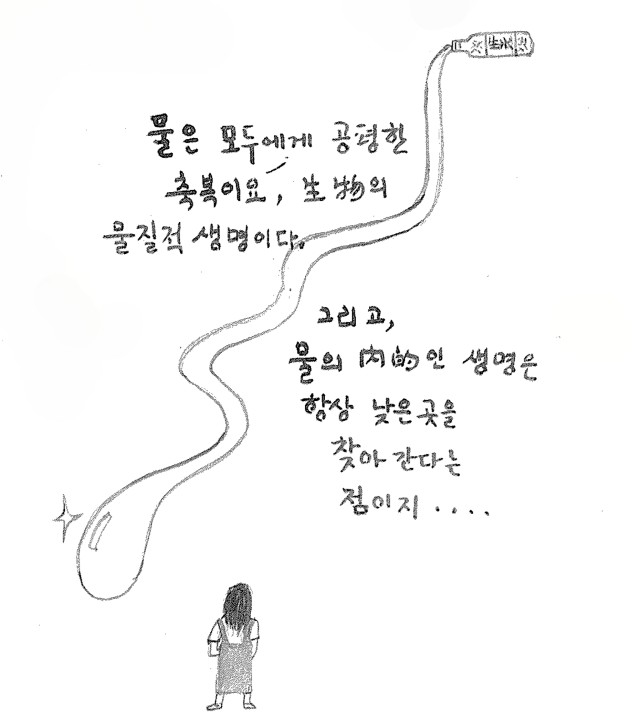 生水
물은 모두에게 공평한
축복이요, 生物의
물질적 생명이다.
그리고,
물의 內的인 생명은
항상 낮은곳을
찾아 간다는
점이지 ....